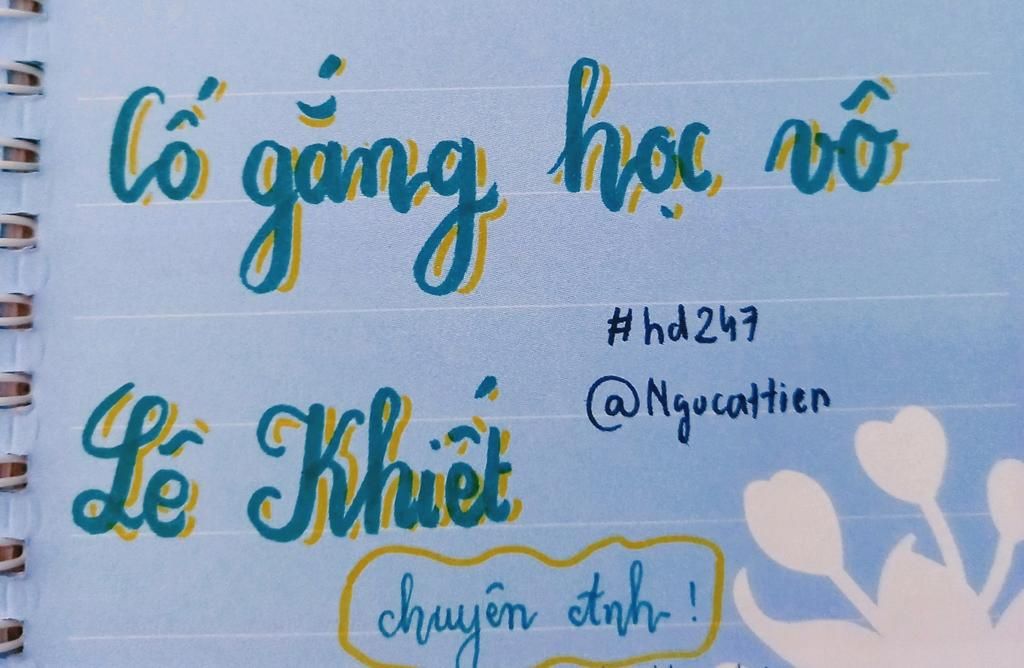 Cố gắng học vô
#hd247
@Ngucattien
Lê Khiết
chuyên Anh!